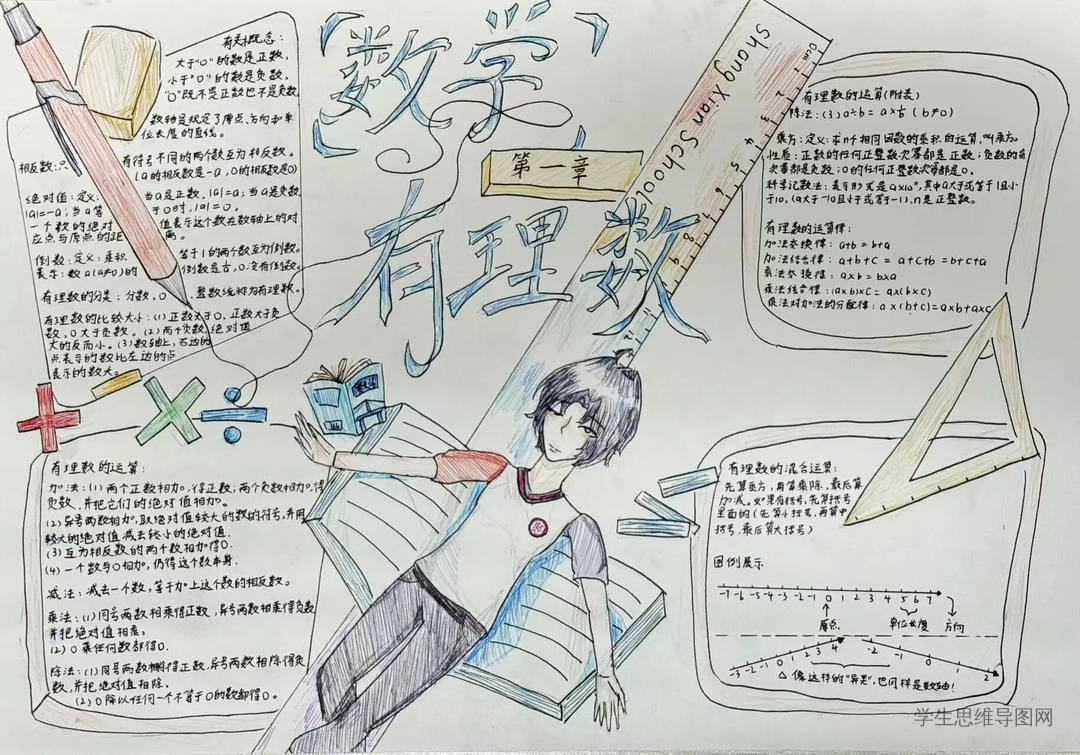 数学
第一章
有理数
Shang Xian School
0cm 1 2 3 4 5 6 7 8 9
有关概念：
大于"0"的数是正数，
小于"0"的数是负数，
"0"既不是正数也不是负数。
数轴是规定了原点、方向和单
位长度的直线。
相反数：只
有符号不同的两个数互为相反数。
(a的相反数是-a，0的相反数是0)
绝对值：定义：
当a是正数，|a|=a；当a是负数，
|a|=-a；当a等
于0时，|a|=0。
一个数的绝对
值表示这个数在数轴上的对
应点与原点的距
离。
倒数：定义：乘积
等于1的两个数互为倒数。
表示：数a(a≠0)的
倒数是
，0没有倒数。
有理数的分类：分数，0
整数统称为有理数。
有理数的比较大小：(1)正数大于0，正数大于负
数，0大于负数。(2)两个负数，绝对值
大的反而小。(3)数轴上，右边的
点表示的数比左边的点
表示的数大。
有理数的运算：
加法：(1)两个正数相加，得正数；两个负数相加，得
负数，并把它们的绝对值相加。
(2)异号两数相加，取绝对值较大的数的符号，并用
较大的绝对值减去较小的绝对值.
(3)互为相反数的两个数相加得0.
(4)一个数与0相加，仍得这个数本身.
减法：减去一个数，等于加上这个数的相反数。
乘法：(1)同号两数相乘得正数，异号两数相乘得负数
并把绝对值相乘；
(2)0乘任何数都得0.
除法：(1)同号两数相除得正数，异号两数相除得负
数，并把绝对值相除.
(2)0除以任何一个不等于0的数都得0.
有理数的运算(附表)
除法：(3)a÷b=a×
(b≠0)
乘方：定义：求n个相同因数的乘积的运算，叫乘方。
性质：正数的任何正整数次幂都是正数；负数的奇
次幂都是负数；0的任何正整数次幂都是0。
科学记数法：表示形式是a×10ⁿ，其中a大于或等于1且小
于10，(a大于-10且小于或等于-1)，n是正整数。
有理数的运算律：
加法交换律：a+b=b+a
加法结合律：a+b+c=a+c+b=b+c+a
乘法交换律：a×b=b×a
乘法结合律：(a×b)×c=a×(b×c)
乘法对加法的分配律：a×(b+c)=a×b+a×c
有理数的混合运算：
先算乘方，再算乘除，最后算
加减。如果有括号，先算括号
里面的(先算小括号，再算中
括号，最后算大括号)
图例展示
-7 -6 -5 -4 -3 -2 -1 0 1 2 3 4 5 6 7
原点
单位长度
方向
-3 -2 -1 0 1 2 3 4
-2 -1 0 1 2
△像这样的"异类"，也同样是数轴！
学生思维导图网